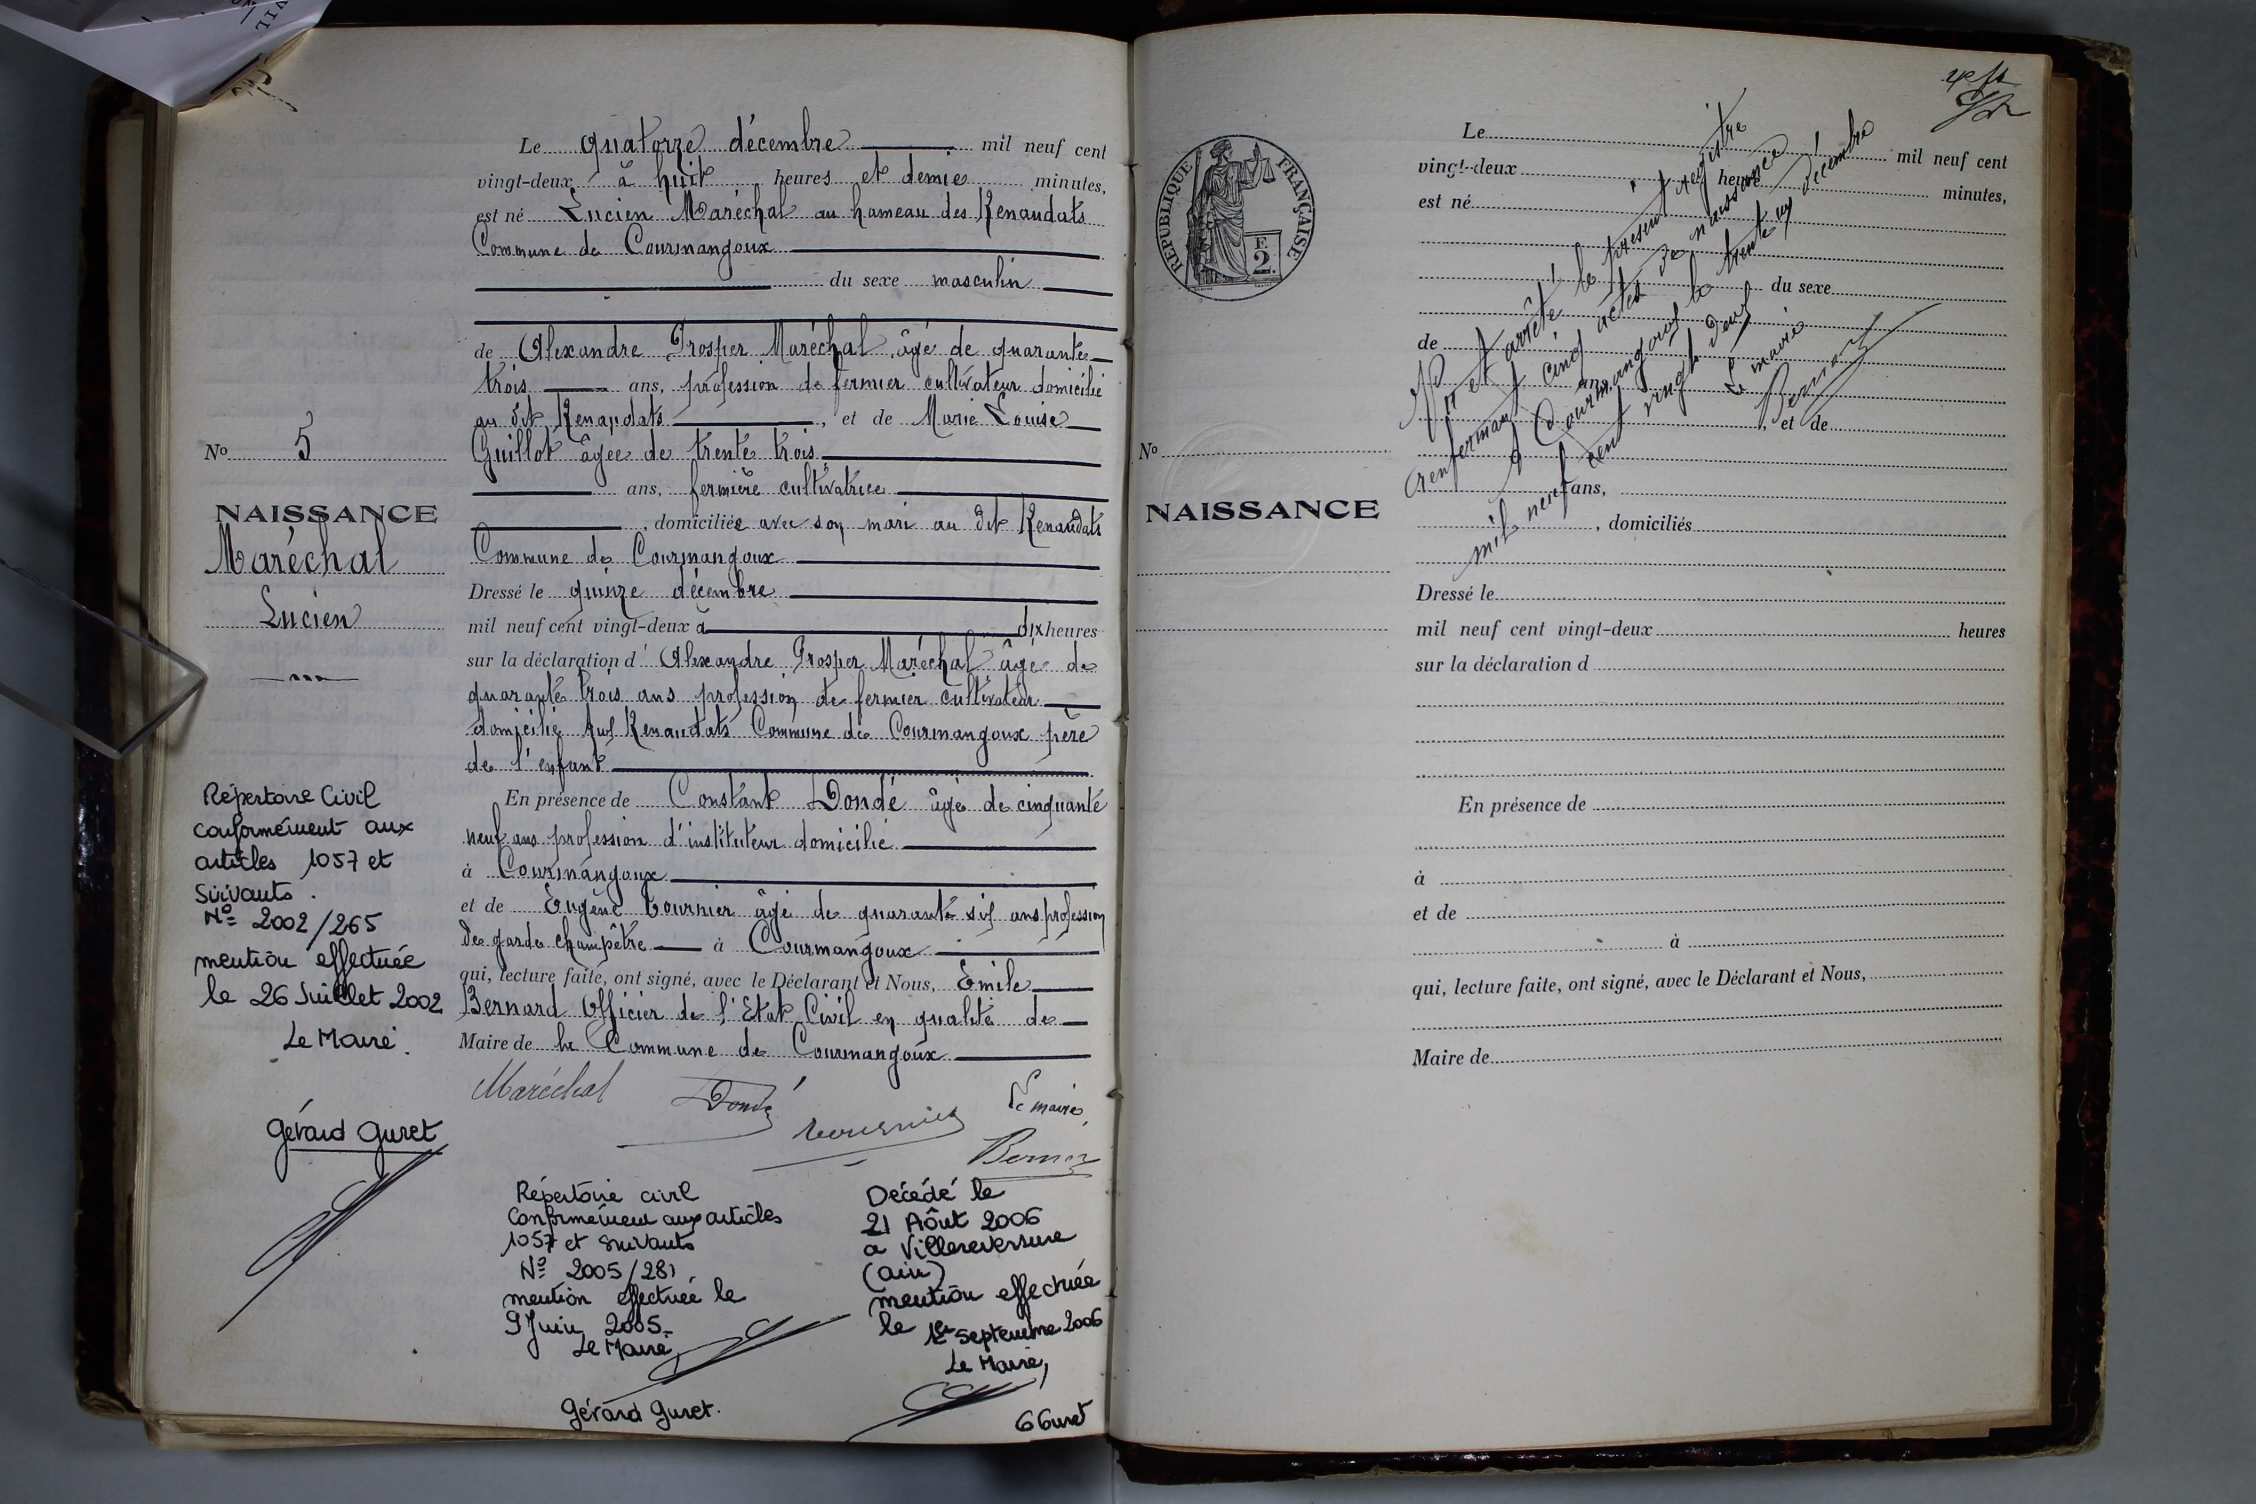 Le quatorze décembre mil neuf cent
vingt-deux à huit heures et demie minutes,
est né Lucien Maréchal au hameau des Renaudats
Commune de Courmangoux
du sexe masculin
de Alexandre Prosper Maréchal, âgé de quarante
trois ans, profession de fermier cultivateur domicilié
au dit Renaudats, et de Marie Louise
Guillot âgée de trente trois
ans, fermière cultivatrice
, domiciliée avec son mari au dit Renaudats
Commune de Courmangoux
Dressé le quinze décembre
mil neuf cent vingt-deux à dix heures
sur la déclaration d'Alexandre Prosper Maréchal âgé de
quarante trois ans profession de fermier cultivateur
domicilié aux Renaudats Commune de Courmangoux père
de l'enfant
En présence de Constant Dondé âgé de cinquante
neuf ans profession d'instituteur domicilié
à Courmangoux
et de Eugène Tournier âgé de quarante six ans profession
de garde champêtre à Courmangoux
qui, lecture faite, ont signé, avec le Déclarant et Nous, Emile
Bernard Officier de l'Etat Civil en qualité de
Maire de la Commune de Courmangoux
Maréchal
Dondé
Tournier
Le maire,
Bernard
No 5
NAISSANCE
Maréchal
Lucien
Répertoire Civil
conformément aux
articles 1057 et
suivants.
No 2002/265
mention effectuée
le 26 Juillet 2002
Le Maire.
Gérard Guret
Répertoire civil
conformément aux articles
1057 et suivants
No 2005/281
mention effectuée le
9 Juin 2005.
Le Maire,
Gérard Guret.
Décédé le
21 Août 2006
a Villereversure
(ain)
mention effectuée
le 1er Septembre 2006
Le Maire,
G Guret
RÉPUBLIQUE FRANÇAISE
F.
2.
No
NAISSANCE
Le mil neuf cent
vingt-deux heure minutes,
est né
du sexe
de
ans,
, et de
ans,
, domiciliés
Dressé le
mil neuf cent vingt-deux heures
sur la déclaration d
En présence de
à
et de
à
qui, lecture faite, ont signé, avec le Déclarant et Nous,
Maire de
et arrêté le présent registre
renfermant cinq actes de naissance
à Courmangoux le trente un décembre
mil neuf cent vingt deux
Le maire
Bernard